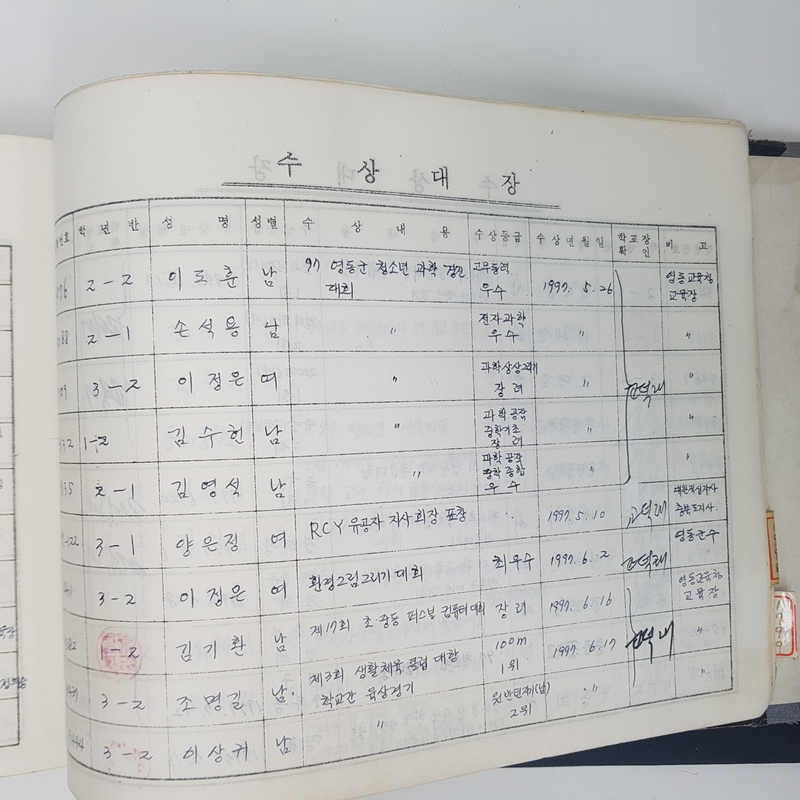 수 상 대 장
번호 학 년 반 성 명 성별 수 상 내 용 수상등급 수 상 년 월 일 학교장 확 인 비 고
76 2-2 이도훈 남 97 영동군 청소년 과학 경진 대회 고무동력 우수 1997. 5. 26 영동교육청 교육장
88 2-1 손석용 남 〃 전자과학 우수 〃
09 3-2 이정은 여 〃 과학상상그리기 장려 〃 〃
32 1-2 김수현 남 〃 과학공작 장려 〃 〃
35 2-1 김영석 남 〃 과학공작 종합 우수 〃 〃
122 3-1 양은정 여 RCY 유공자 지사회장 포창 1997. 5. 10 대한적십자사 충북도지사
3-2 이정은 여 환경그림그리기대회 최우수 1997. 6. 2 영동군수
1-2 김기환 남 제17회 초·중등 퍼스널 컴퓨터대회 장려 1997. 6. 16 영동교육청 교육장
3-2 조명길 남 제3회 생활체육 클럽 대항 학교간 육상경기 100m 1위 1997. 6. 17 〃
3-2 이상귀 남 〃 원반던지기(남) 2위 〃 〃